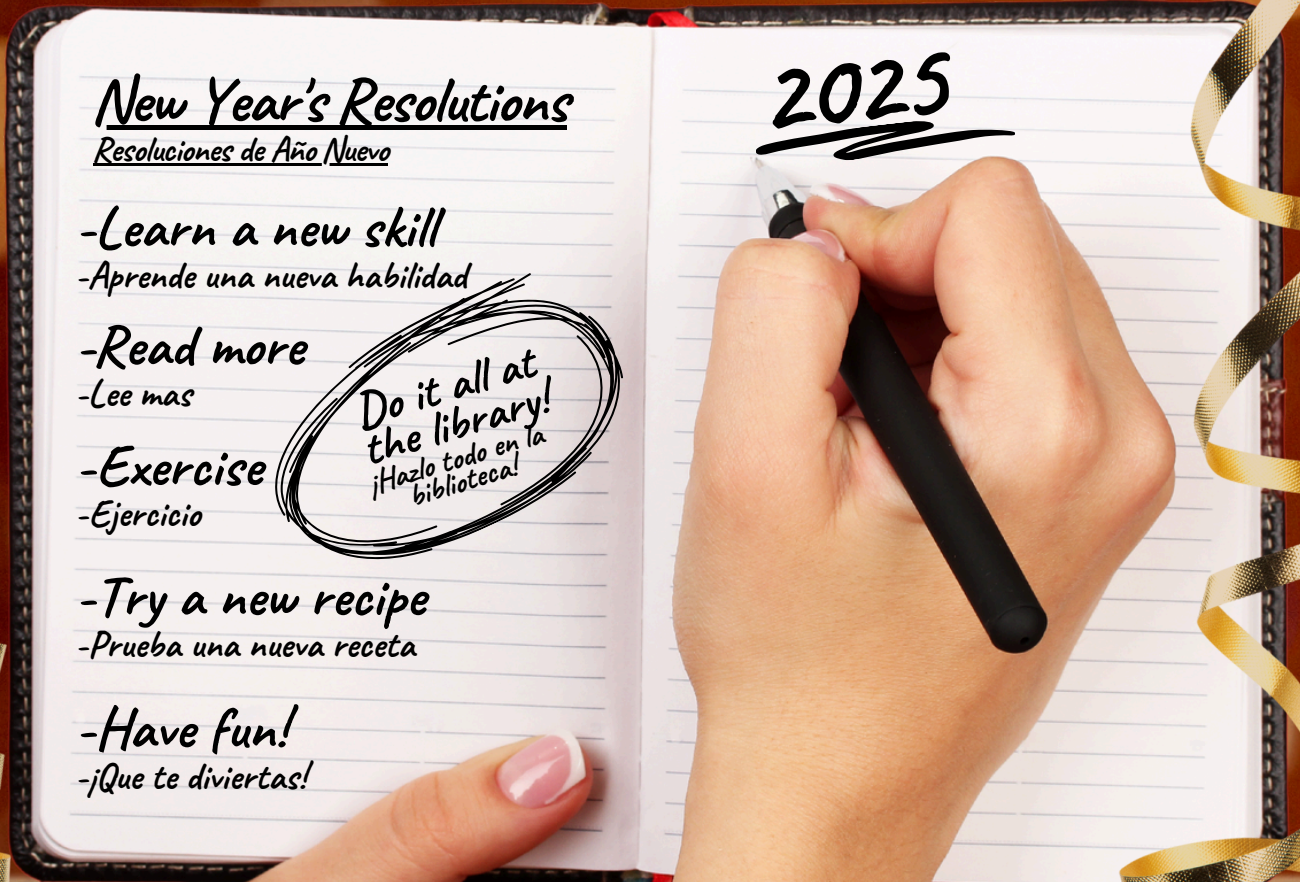 New Year's Resolutions
Resoluciones de Año Nuevo
-Learn a new skill
-Aprende una nueva habilidad
-Read more
-Lee mas
-Exercise
-Ejercicio
-Try a new recipe
-Prueba una nueva receta
-Have fun!
-¡Que te diviertas!
Do it all at
the library!
¡Hazlo todo en la
biblioteca!
2025